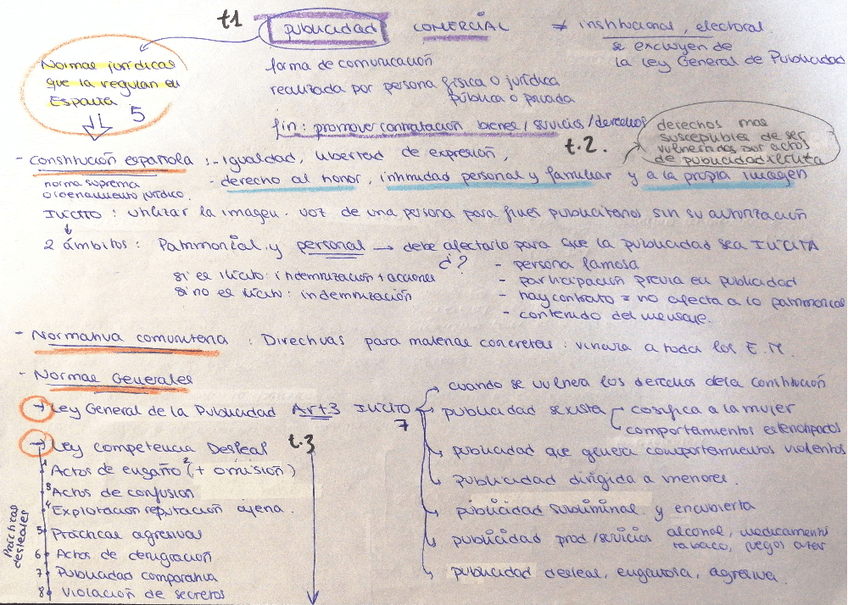 t1 publicidad COMERCIAL ≠ institucional, electoral.
se excluyen de
la Ley General de Publicidad
Normas jurídicas
que la regulan en
España 5
forma de comunicación
realizada por persona física o jurídica
pública o privada
fin: promover contratación bienes/servicios/derechos
t.2.
derechos mas
susceptibles de ser
vulnerados por actos
de publicidad ilícita
- Constitución española : - igualdad, libertad de expresión,
norma suprema
ordenamiento jurídico.
- derecho al honor, intimidad personal y familiar y a la propia imagen
ILÍCITO : utilizar la imagen. voz de una persona para fines publicitarios sin su autorización
2 ámbitos : Patrimonial y personal → debe afectarlo para que la publicidad sea ILÍCITA
¿?
si es ilícito: indemnización + acciones
si no es ilícito: indemnización
- persona famosa
- participación previa en publicidad
- hay contrato = no afecta a lo patrimonial
- contenido del mensaje.
- Normativa comunitaria : Directivas para materias concretas : vincula a todos los E.M.
- Normas Generales
→ Ley General de la Publicidad Art 3 ILÍCITO
7
cuando se vulnera los derechos de la constitución
publicidad sexista - cosifica a la mujer
comportamientos estereotipados
publicidad que genera comportamientos violentos
publicidad dirigida a menores.
publicidad subliminal y encubierta
publicidad prod/servicios alcohol, medicamento
tabaco, juegos azar
publicidad desleal, engañosa, agresiva.
→ Ley Competencia Desleal t.3
Prácticas
desleales
1 Actos de engaño 2 (+ omisión)
3 Actos de confusión
4 Explotación reputación ajena.
5 Prácticas agresivas
6 Actos de denigración
7 Publicidad comparativa
8 Violación de secretos